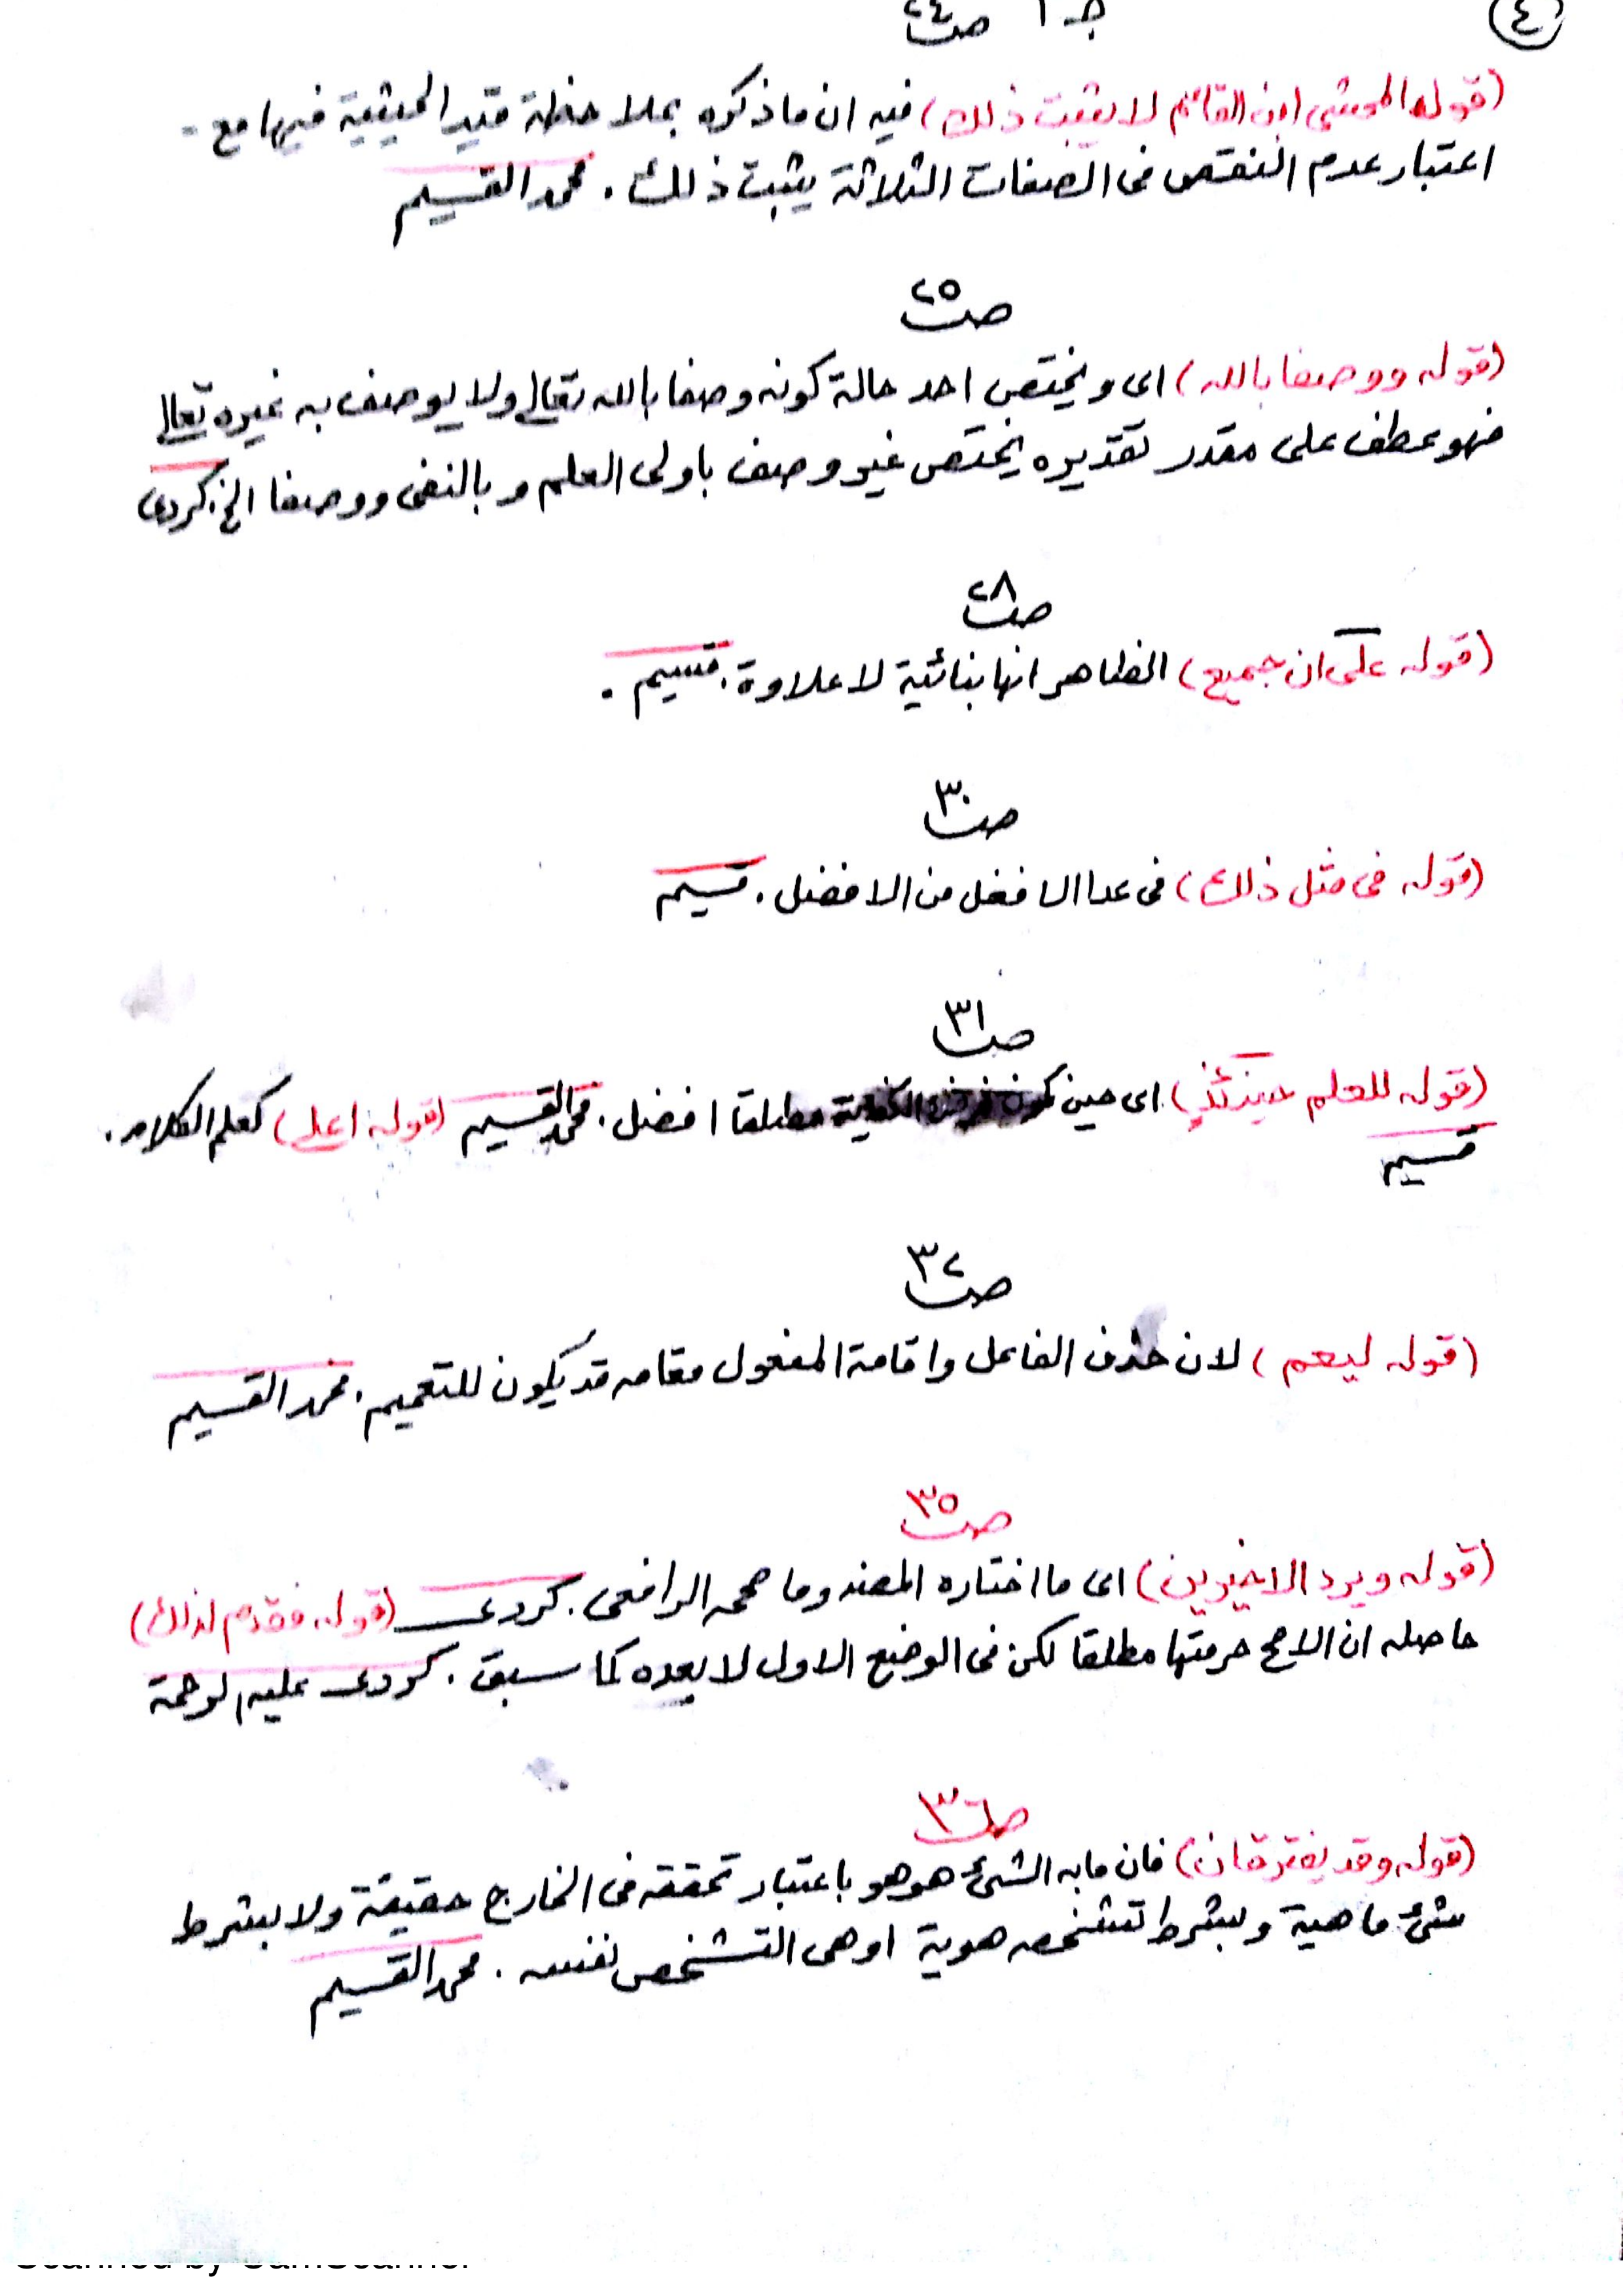 ٤
جـ ١ صـ ٢٤
(قوله المحشي ابن القاسم لا يثبت ذلك) فيه ان ما ذكره بملاحظة قيد الحيثية فيها مع -
اعتبار عدم النقص فى الصفات الثلاثة يثبت ذلك . محمد القسيم
صـ ٢٥
(قوله ووصفا بالله) اى ويختص احد حالة كونه وصفا بالله تعالى ولا يوصف به غيره تعالى
فهو عطف على مقدر تقديره يختص غير وصف باولى العلم وبالنفى ووصفا الخ . كردى
صـ ٢٨
(قوله على ان جميع) الظاهر انها بنائية لا علاوة . قسيم .
صـ ٣٠
(قوله فى مثل ذلك) فى عدا الافضل من الافضل . قسيم
صـ ٣١
(قوله للعلم حينئذٍ) اى حين كون فرض الكفاية مطلقا افضل . محمد القسيم (قوله اعلى) كعلم الكلام .
قسيم
صـ ٣٢
(قوله ليعم) لان حذف الفاعل واقامة المفعول مقامه قد يكون للتعميم . محمد القسيم
صـ ٣٥
(قوله ويرد الاخيرين) اى ما اختاره المصنف وما صححه الرافعى . كردى (قوله فقدم لذلك)
حاصله ان الاصح حرمتها مطلقا لكن فى الوضع الاول لا بعده كما سبق . كردى عليه الرحمة
صـ ٣٦
(قوله وقد يفترقان) فان مابه الشئ هو هو باعتبار تحققه فى الخارج حقيقة ولا بشرط
شئ ماهية وبشرط تشخصه هوية او هى التشخص نفسه . محمد القسيم
Scanned by CamScanner